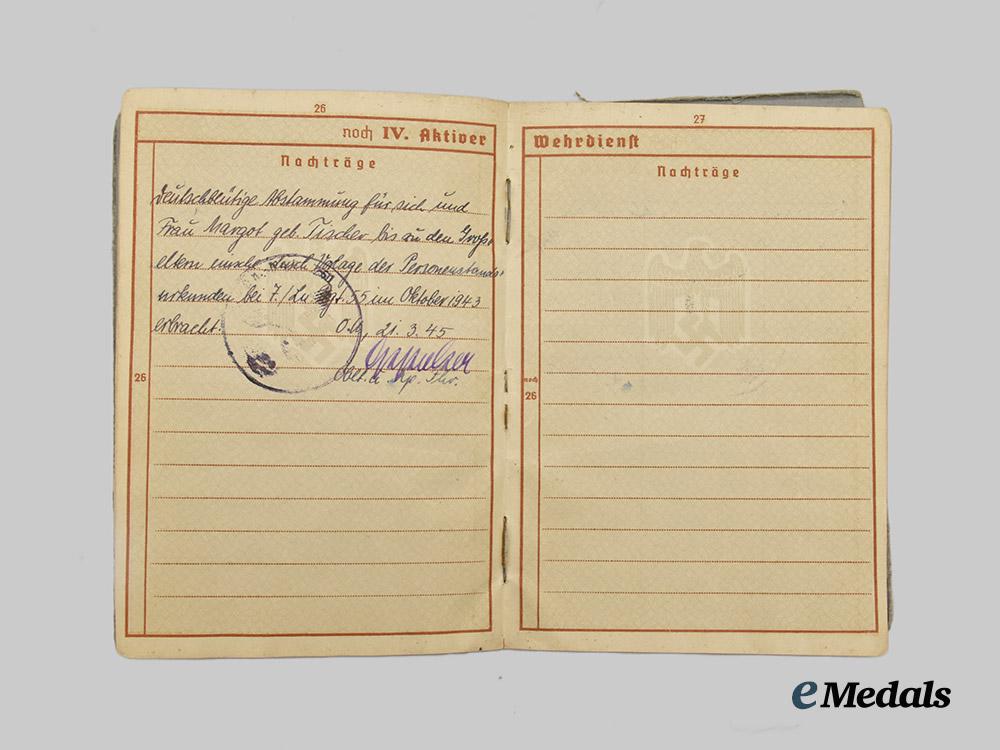 26
noch IV. Aktiver
Nachträge
Deutschblütige Abstammung für sich und
Frau Margot geb. Tischer bis zu den Groß-
eltern einschl. durch Vorlage der Personenstands-
urkunden bei 7./Ln. Rgt. 55 im Oktober 1943
erbracht.
O.U., 21.3.45
Oblt. u. Kp.
26
27
Wehrdienst
Nachträge
noch
26
eMedals